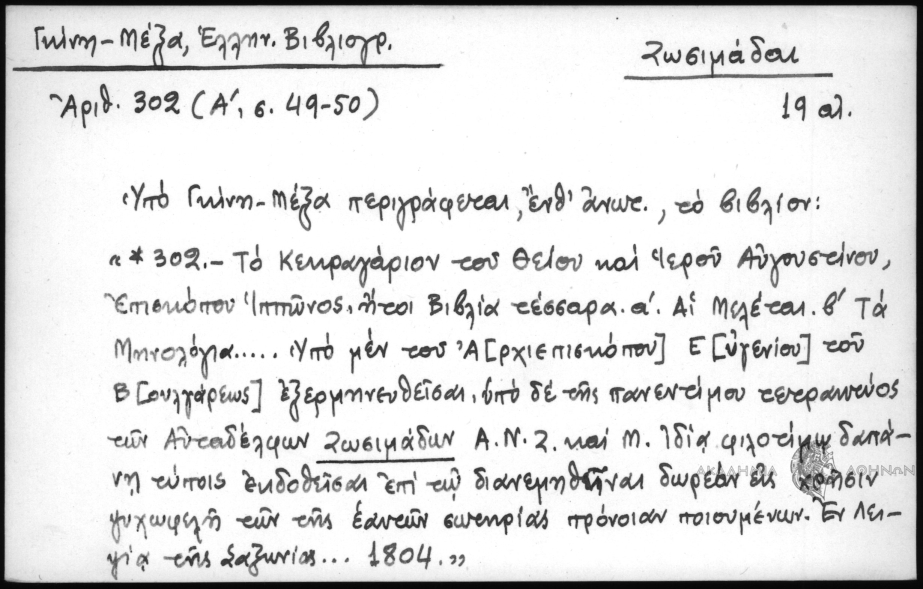 Γκίνη-Μέξα, Ἑλλην. Βιβλιογρ.
Ζωσιμάδαι
Ἀριθ. 302 (Α', σ. 49-50)
19 αἰ.
Ὑπό Γκίνη-Μέξα περιγράφεται, ἔνθ' ἄνωτ., τό βιβλίον:
«*302.- Τό Κεκραγάριον τοῦ Θείου καί Ἱεροῦ Αὐγουστίνου,
Ἐπισκόπου Ἱππῶνος, ἤτοι Βιβλία τέσσαρα. α'. Αἱ Μελέται. β' Τά
Μηνολόγια..... Ὑπό μέν τοῦ Ἀ[ρχιεπισκόπου] Ε[ὐγενίου] τοῦ
Β[ουλγάρεως] ἐξερμηνευθεῖσαι, ὑπό δέ τῆς πανεντίμου τετρακτύος
τῶν Αὐταδέλφων Ζωσιμάδων Α.Ν.Ζ. καί Μ. Ἰδίᾳ φιλοτίμῳ δαπά-
νῃ τύποις ἐκδοθεῖσαι ἐπί τῷ διανεμηθῆναι δωρεάν εἰς χρῆσιν
ψυχωφελῆ τῶν τῆς ἑαυτῶν σωτηρίας πρόνοιαν ποιουμένων. Ἐν Λει-
ψίᾳ τῆς Σαξωνίας... 1804.»
ΑΚΑΔΗΜΙΑ ΑΘΗΝΩΝ